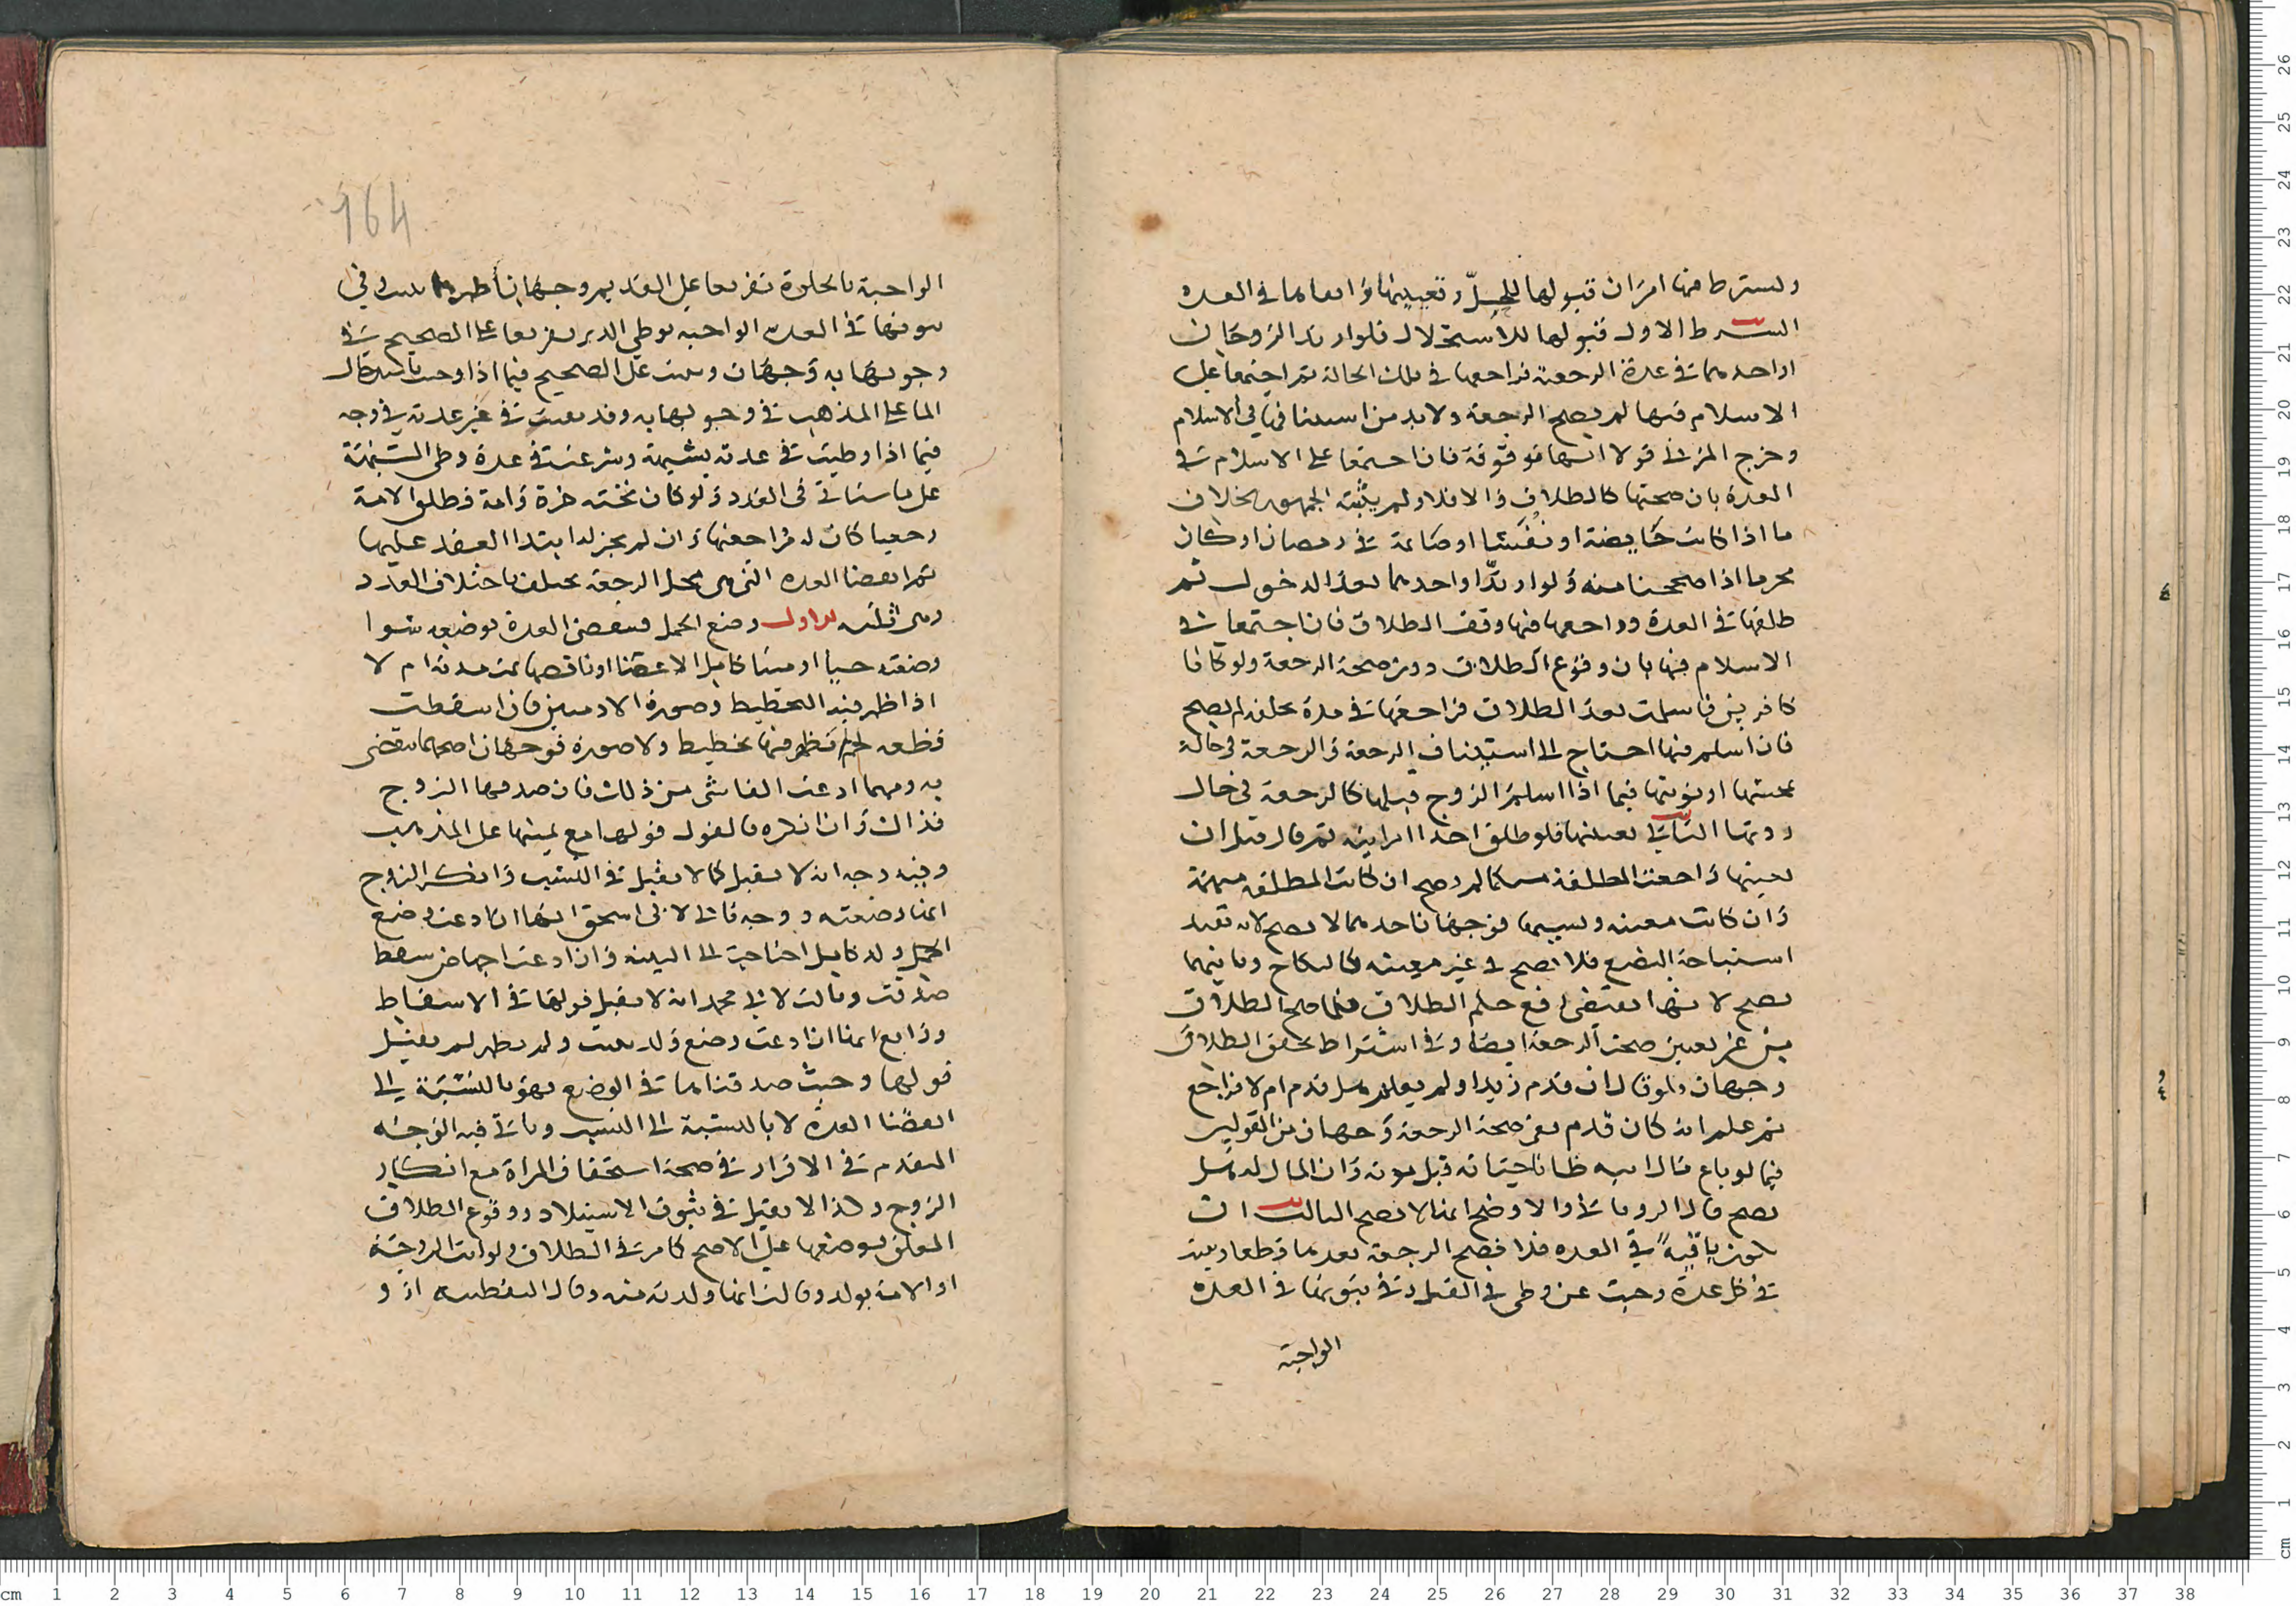 ويشترط فيها امران قبولها للحل وتعيينها وايقاعها في العده
الشرط الاول قبولها للاستحلال فلو ارتد الزوجان
او احدهما في عدة الرجعة فراجعها في تلك الحالة ثم اجتمعا على
الاسلام فيها لم يصح الرجعة ولا بد من استينافها في الاسلام
وخرج المزني قولا انها موقوفة فان اجتمعا على الاسلام في
العدة بان صحتها كالطلاق والا فلا ولم يثبته الجمهور بخلاف
ما اذا كانت حايضة او نفسا او صايمة في رمضان او كان
محرما اذا صححنا منه ولو ارتدا او احدهما بعد الدخول ثم
طلقها في العدة وراجعها فيها وقف الطلاق فان اجتمعا في
الاسلام فيها بان وقوع الطلاق دون صحة الرجعة ولو كانا
كافرين فاسلمت بعد الطلاق فراجعها في مدة تخلفه لم يصح
فان اسلم فيها احتاج الى استيناف الرجعة والرجعة في حالة
دونها الثاني تعيينها فلو طلق احدا امراتيه ثم قال قبل ان
يعينها راجعت المطلقة ان كانت المطلقة مبهمة
وان كانت معينه ونسيها فوجهان احدهما لا يصح لانه تعيد
استباحة البضع فلا تصح في غير معينة كالنكاح وثانيهما
يصح لانها تقتضي رفع حكم الطلاق فلما صح الطلاق
من غير تعيين صحت الرجعة ايضا وفي اشتراط تحقق الطلاق
وجهان فلو قال ان قدم زيد او لم يعلم هل قدم ام لا فراجع
ثم علم انه كان قدم ففي صحة الرجعة وجهان من القولين
فيما لو باع مال ابيه ظانا حياته قبل موته وان المال له هل
يصح قال الروياني والاوضح انها لا تصح الثالث ان
تكون باقية في العده فلا تصح الرجعة بعدها قطعا ويثبت
في كل عدة وجبت عن وطي في القبل وفي ثبوتها في العده
الواجبة
164
الواجبة بالخلوة تفريعا على القديم وجهان
ثبوتها في العدة الواجبه بوطي الدبر تفريعا على الصحيح في
وجوبها به وجهان ويثبت على الصحيح فيما اذا وجبت باستدخال
الما على المذهب في وجوبها به وقد يثبت في غير عدته في وجه
فيما اذا وطيت في عدته بشبهة وشرعت في عدة وطي الشبهة
على ما سياتي في العدد ولو كان تحته حرة وامة فطلق الامة
رجعيا كان له مراجعتها وان لم يجز له ابتدا العقد عليها
ثم انقضا العده التي هي محل الرجعة يختلف باختلاف العدد
وهي ثلثه الاول وضع الحمل فتنقضي العدة بوضعه سوا
وضعته حيا او ميتا كامل الاعضا او ناقصها تمت مدته ام لا
اذا ظهر فيه التخطيط وصورة الادميين فان اسقطت
قطعه لحم لم تظهر فيها تخطيط ولا صورة فوجهان اصحهما تنقضي
به ومهما ادعت القا شي من ذلك فان صدقها الزوج
فذاك وان انكره فالقول قولها مع يمينها على المذهب
وفيه وجه انه لا يقبل كما لا يقبل في النسب وانكر الزوج
انها وضعته ووجه ثالث لابي اسحق انها ان ادعت وضع
الحمل ولد كامل احتاجت الى البينه وان ادعت اجهاض سقط
صدقت وثالث لابي محمد انه لا يقبل قولها في الاسقاط
ورابع انها ان ادعت وضع ولد ميت ولم يظهر لم يقبل
قولها وحيث صدقناها في الوضع فهو بالنسبة الى
انقضا العدة لا بالنسبة الى النسب وياتي فيه الوجه
المتقدم في الاقرار في صحة استحقاق المراة مع انكار
الزوج وكذا لا يقبل في ثبوت الاستيلاد ووقوع الطلاق
المعلق بوضعها على الاصح كما مر في الطلاق ولو اتت الزوجة
او الامة بولد وقالت انها ولدته منه وقال